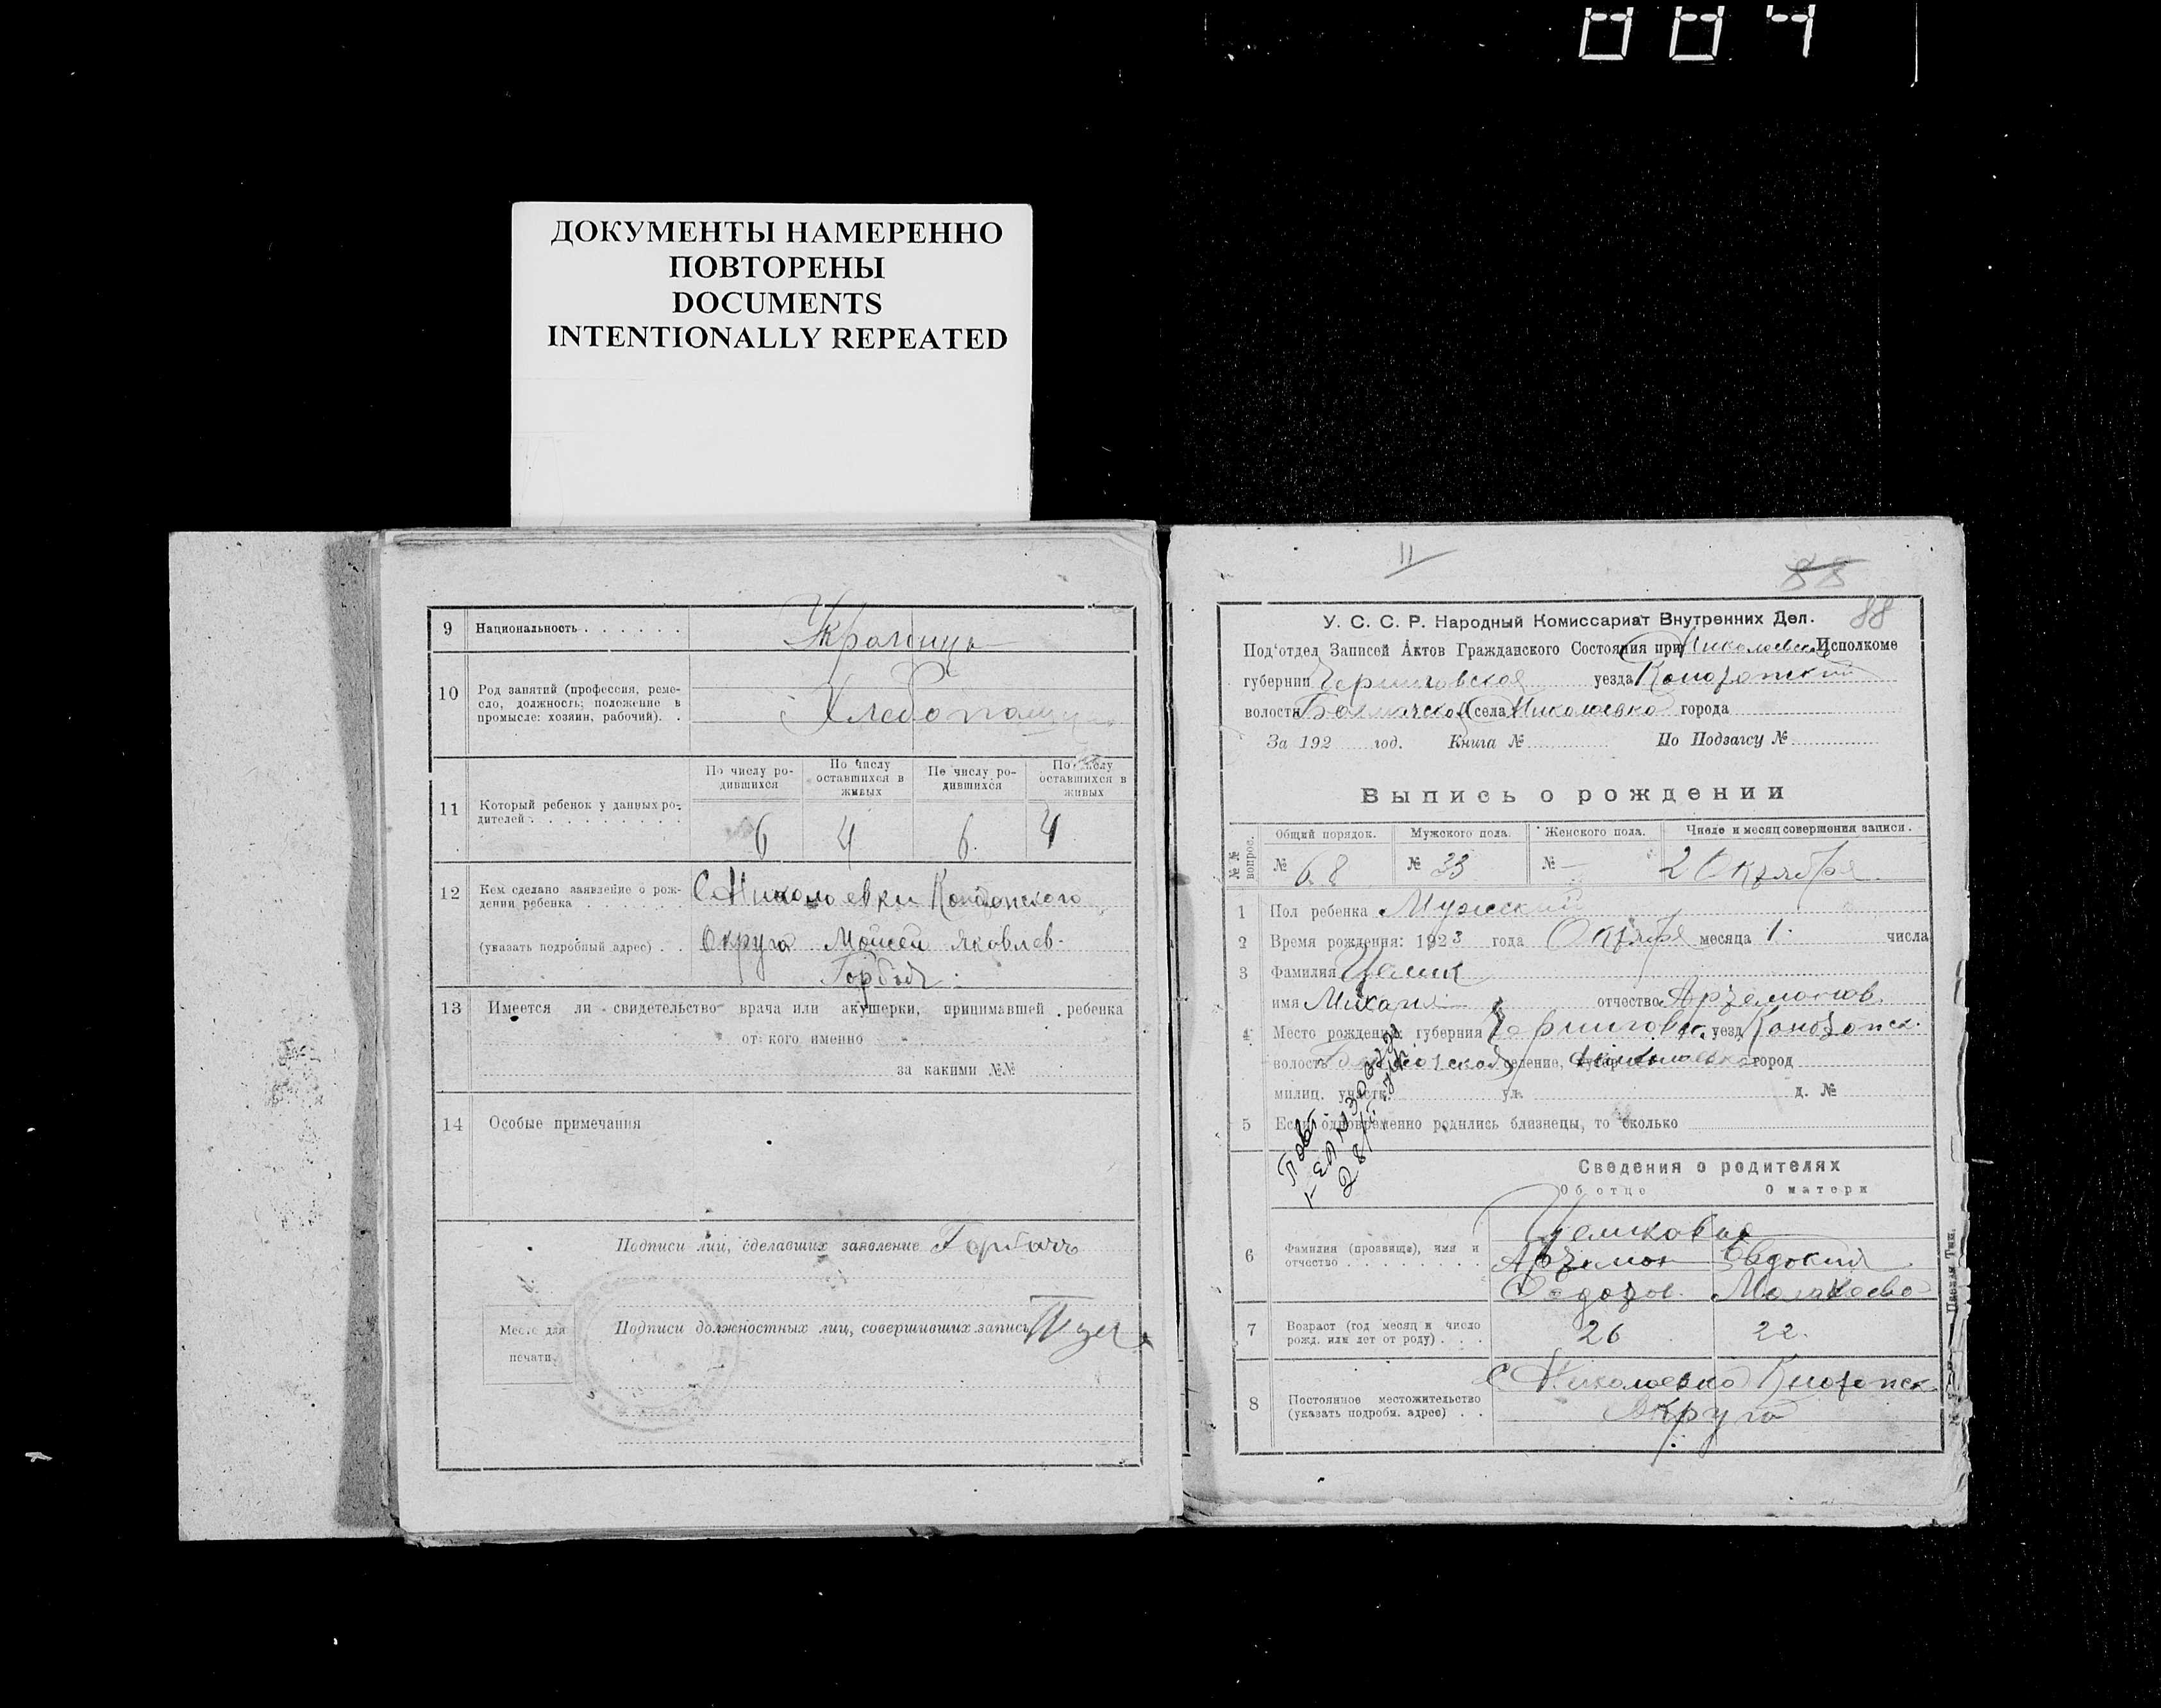 004
ДОКУМЕНТЫ НАМЕРЕННО
ПОВТОРЕНЫ
DOCUMENTS
INTENTIONALLY REPEATED
9 Национальность . . . . . . Украинцы
10 Род занятий (профессия, реме-
сло, должность; положение в
промысле: хозяин, рабочий). .
Хлебопашцы
11 Который ребенок у данных ро-
дителей . . . . . . . . .
По числу ро-
дившихся
По числу
оставшихся в
живых
По числу ро-
дившихся
По числу
оставшихся в
живых
6 4 6. 4
12 Кем сделано заявление о рож-
дении ребенка . . . . . . С. Николаевки Конотопского
(указать подробный адрес) . . Округа Моисей Яковлев.
13 Имеется ли свидетельство врача или акушерки, принимавшей ребенка
от кого именно
за какими №№
14 Особые примечания
Подписи лиц, сделавших заявление Горбачъ
Место для
печати
Подписи должностных лиц, совершивших запись
11
88
88
У. С. С. Р. Народный Комиссариат Внутренних Дел.
Под'отдел Записей Актов Гражданского Состояния при Николаевском Исполкоме
губернии Черниговской уезда Конотопский
волости Бахмачской села Николаевка города
За 192 год. Книга № По Подзагсу №
Выпись о рождении
№№ вопрос.
Общий порядок. Мужского пола. Женского пола. Число и месяц совершения записи.
№ 68 № 33 № — 2 Октября
1 Пол ребенка Мужский
2 Время рождения: 1923 года Октября месяца 1. числа
3 Фамилия
имя Михаил отчество Артемонов
4 Место рождения: губерния Черниговск. уезд Конотопск.
волость Бахмачской селение, хутор Николаевка город
милиц. участк. ул. д. №
5 Если одновременно родились близнецы, то сколько
Сведения о родителях
Об отце О матери
6 Фамилия (прозвище), имя и
отчество . . . . . . . . .
Артемон Евдокия
Федоров.
7 Возраст (год месяц и число
рожд. или лет от роду) . . .
26 22.
8 Постоянное местожительство
(указать подробн. адрес) . .
С. Николаевка Конотопск.
Округа